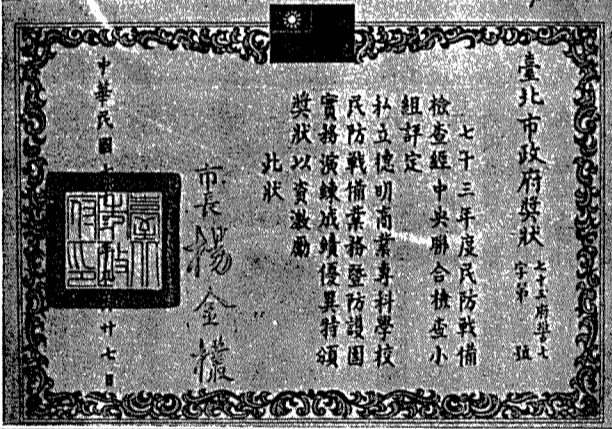 臺北市政府獎狀
字第
號
七十三年度民防戰備
檢查經中央聯合檢查小
組評定
私立德明商業專科學校
民防戰備業務暨防護團
實務演練成績優異特頒
獎狀以資激勵
此狀
市長楊金欉
中華民國七
廿七日